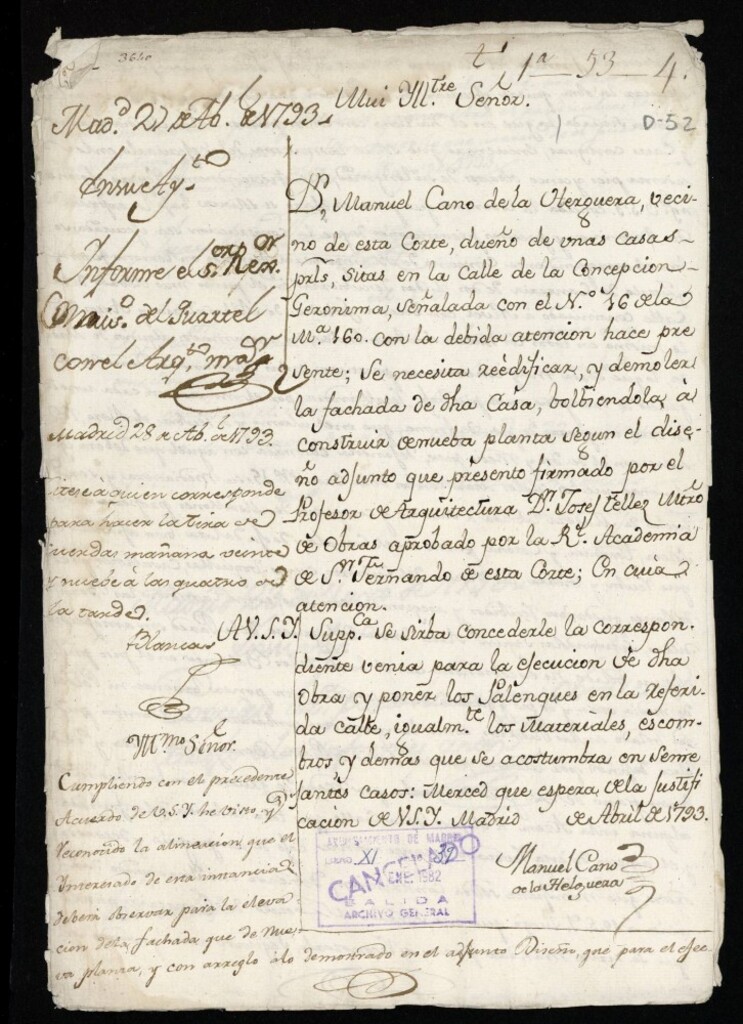 3640
t.1 1a — 53 — 4.
D-52
Mui Yll.tre Señor.
Mad.d 27 de Ab.l de 1793.
En su Ay.to
Ynforme el S.or Rex.or
Comis.o del quartel
con el Arq.to m.or
Madrid 28 de Ab.l de 1793
Citese à quien corresponde
para hacer la tira de
cuerdas mañana veinte
y nuebe à las quatro de
la tarde.
Blancas
Yllmo Señor.
Cumpliendo con el precedente
Acuerdo de V.S.Y. he visto, y
reconocido la alineacion que el
Interesado de esta instancia
deberà observar para la eleva
cion de la fachada que de nue
va planta, y con arreglo à lo demostrado en el adjunto Diseño, que para el efec
D.n Manuel Cano de la Herguera, veci-
no de esta Corte, dueño de unas Casas
prls, sitas en la Calle de la Concepcion
Geronima, señalada con el N.o 16 de la
M.a 160. con la debida atencion hace pre
sente; se necesita reèdificar, y demoler
la fachada de dha Casa, bolbiendola à
construir de nueba planta segun el dise-
ño adjunto que presento firmado por el
Profesor de Arquitectura D.n Josef Tellez Mtro
de Obras aprobado por la R.l Academia
de S.n Fernando de esta Corte; En cuia
atencion.
A V.S.Y. Supp.ca se sirba concederle la correspon-
diente venia para la ejecucion de dha
Obra y poner los Palenques en la referi-
da calle, igualm.te los Materiales, escom-
bros y demas que se acostumbra en seme
jantes casos: Merced que espera de la justifi
cacion de V.S.Y. Madrid de Abril de 1793.
Manuel Cano
de la Helguera
AYUNTAMIENTO DE MADRID
XI 39
CANCELADO
ENE. 1982
SALIDA
ARCHIVO GENERAL